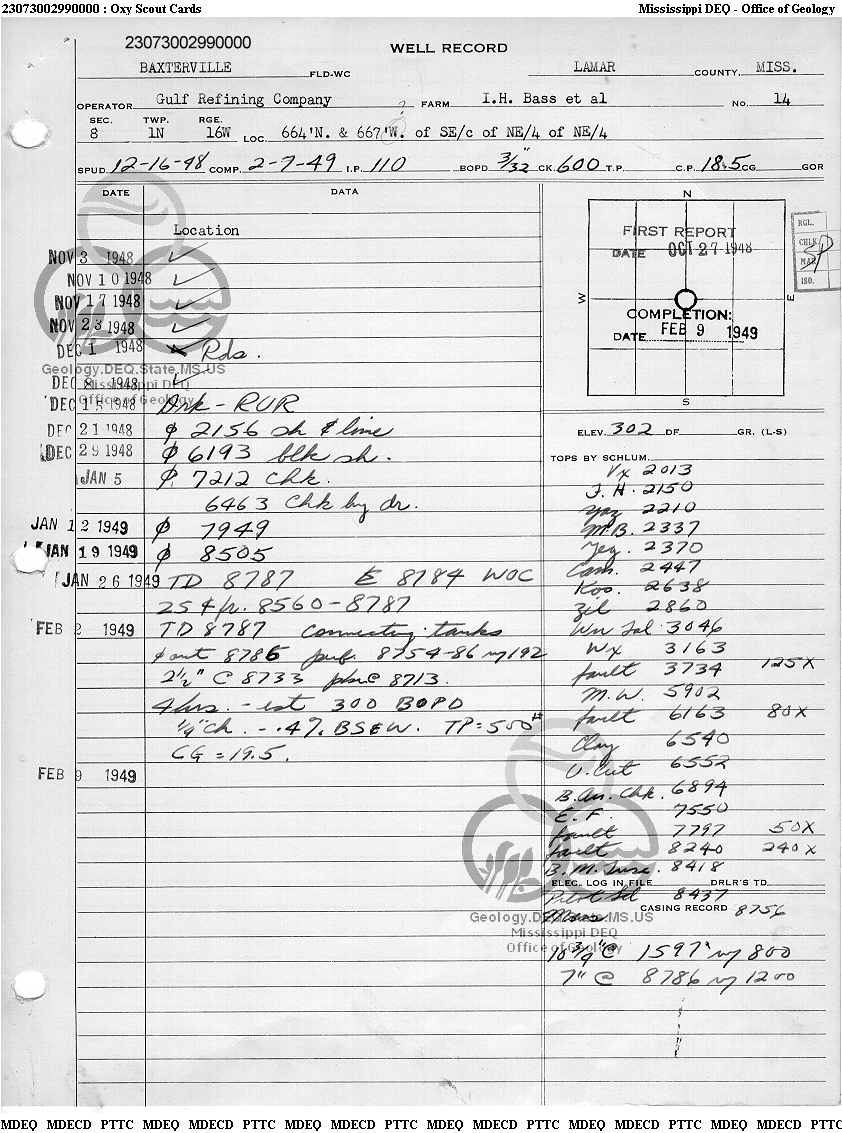 23073002990000 : Oxy Scout Cards Mississippi DEQ - Office of Geology
23073002990000
WELL RECORD
BAXTERVILLE FLD-WC LAMAR COUNTY, MISS.
OPERATOR Gulf Refining Company ? FARM I.H. Bass et al No. 14
SEC. TWP. RGE.
8 1N 16W LOC. 664'N. & 667'W. of SE/c of NE/4 of NE/4
SPUD 12-16-48 COMP. 2-7-49 I.P. 110 BOPD 3/32" CK 600 T.P. C.P. 18.5 CG GOR
DATE DATA
Location
NOV 3 1948 ✓
NOV 10 1948 ✓
NOV 17 1948 ✓
NOV 23 1948 ✓
DEC 1 1948 Rds.
DEC 8 1948 ✓
DEC 15 1948 Drk - RUR
DEC 21 1948 ⌀ 2156 sh & lime
DEC 29 1948 ⌀ 6193 blk sh.
JAN 5 ⌀ 7212 Chk.
6463 Chk by dr.
JAN 12 1949 ⌀ 7949
JAN 19 1949 ⌀ 8505
JAN 26 1949 TD 8787 8784 WOC
25 & fr. 8560-8787
FEB 2 1949 TD 8787 connecting tanks
out 8785 perf. 8754-86 w/192
2 1/2" C 8733 pkr @ 8713.
4 hrs. - est 300 BOPD
1/4" Ch. - .4% BS&W. TP=500#
CG = 19.5.
FEB 9 1949
N
W
E
S
FIRST REPORT
DATE OCT 27 1948
COMPLETION:
DATE FEB 9 1949
RGL.
CHLK
MAP
ISO.
ELEV. 302 DF GR. (L-S)
TOPS BY SCHLUM.
Vx 2013
J.H. 2150
Yaz 2210
M.B. 2337
Yeg. 2370
Cam. 2447
Koo. 2638
Zil 2860
Wn Sal 3046
Wx 3163
fault 3734 125X
M.W. 5902
fault 6163 80X
Clay 6540
U. Cut 6552
B. An. Chk. 6894
E.F. 7550
fault 7797 50X
fault 8240 240X
B.M. Tusc. 8418
ELEC. LOG IN FILE DRLR'S TD
Pilot Sd 8437
Mass 8756
CASING RECORD
10 3/4" @ 1597' w/ 800
7" @ 8786 w/ 1200
Geology.DEQ.State.MS.US
Mississippi DEQ
Office of Geology
Geology.DEQ.State.MS.US
Mississippi DEQ
Office of Geology
MDEQ MDECD PTTC MDEQ MDECD PTTC MDEQ MDECD PTTC MDEQ MDECD PTTC MDEQ MDECD PTTC MDEQ MDECD PTTC